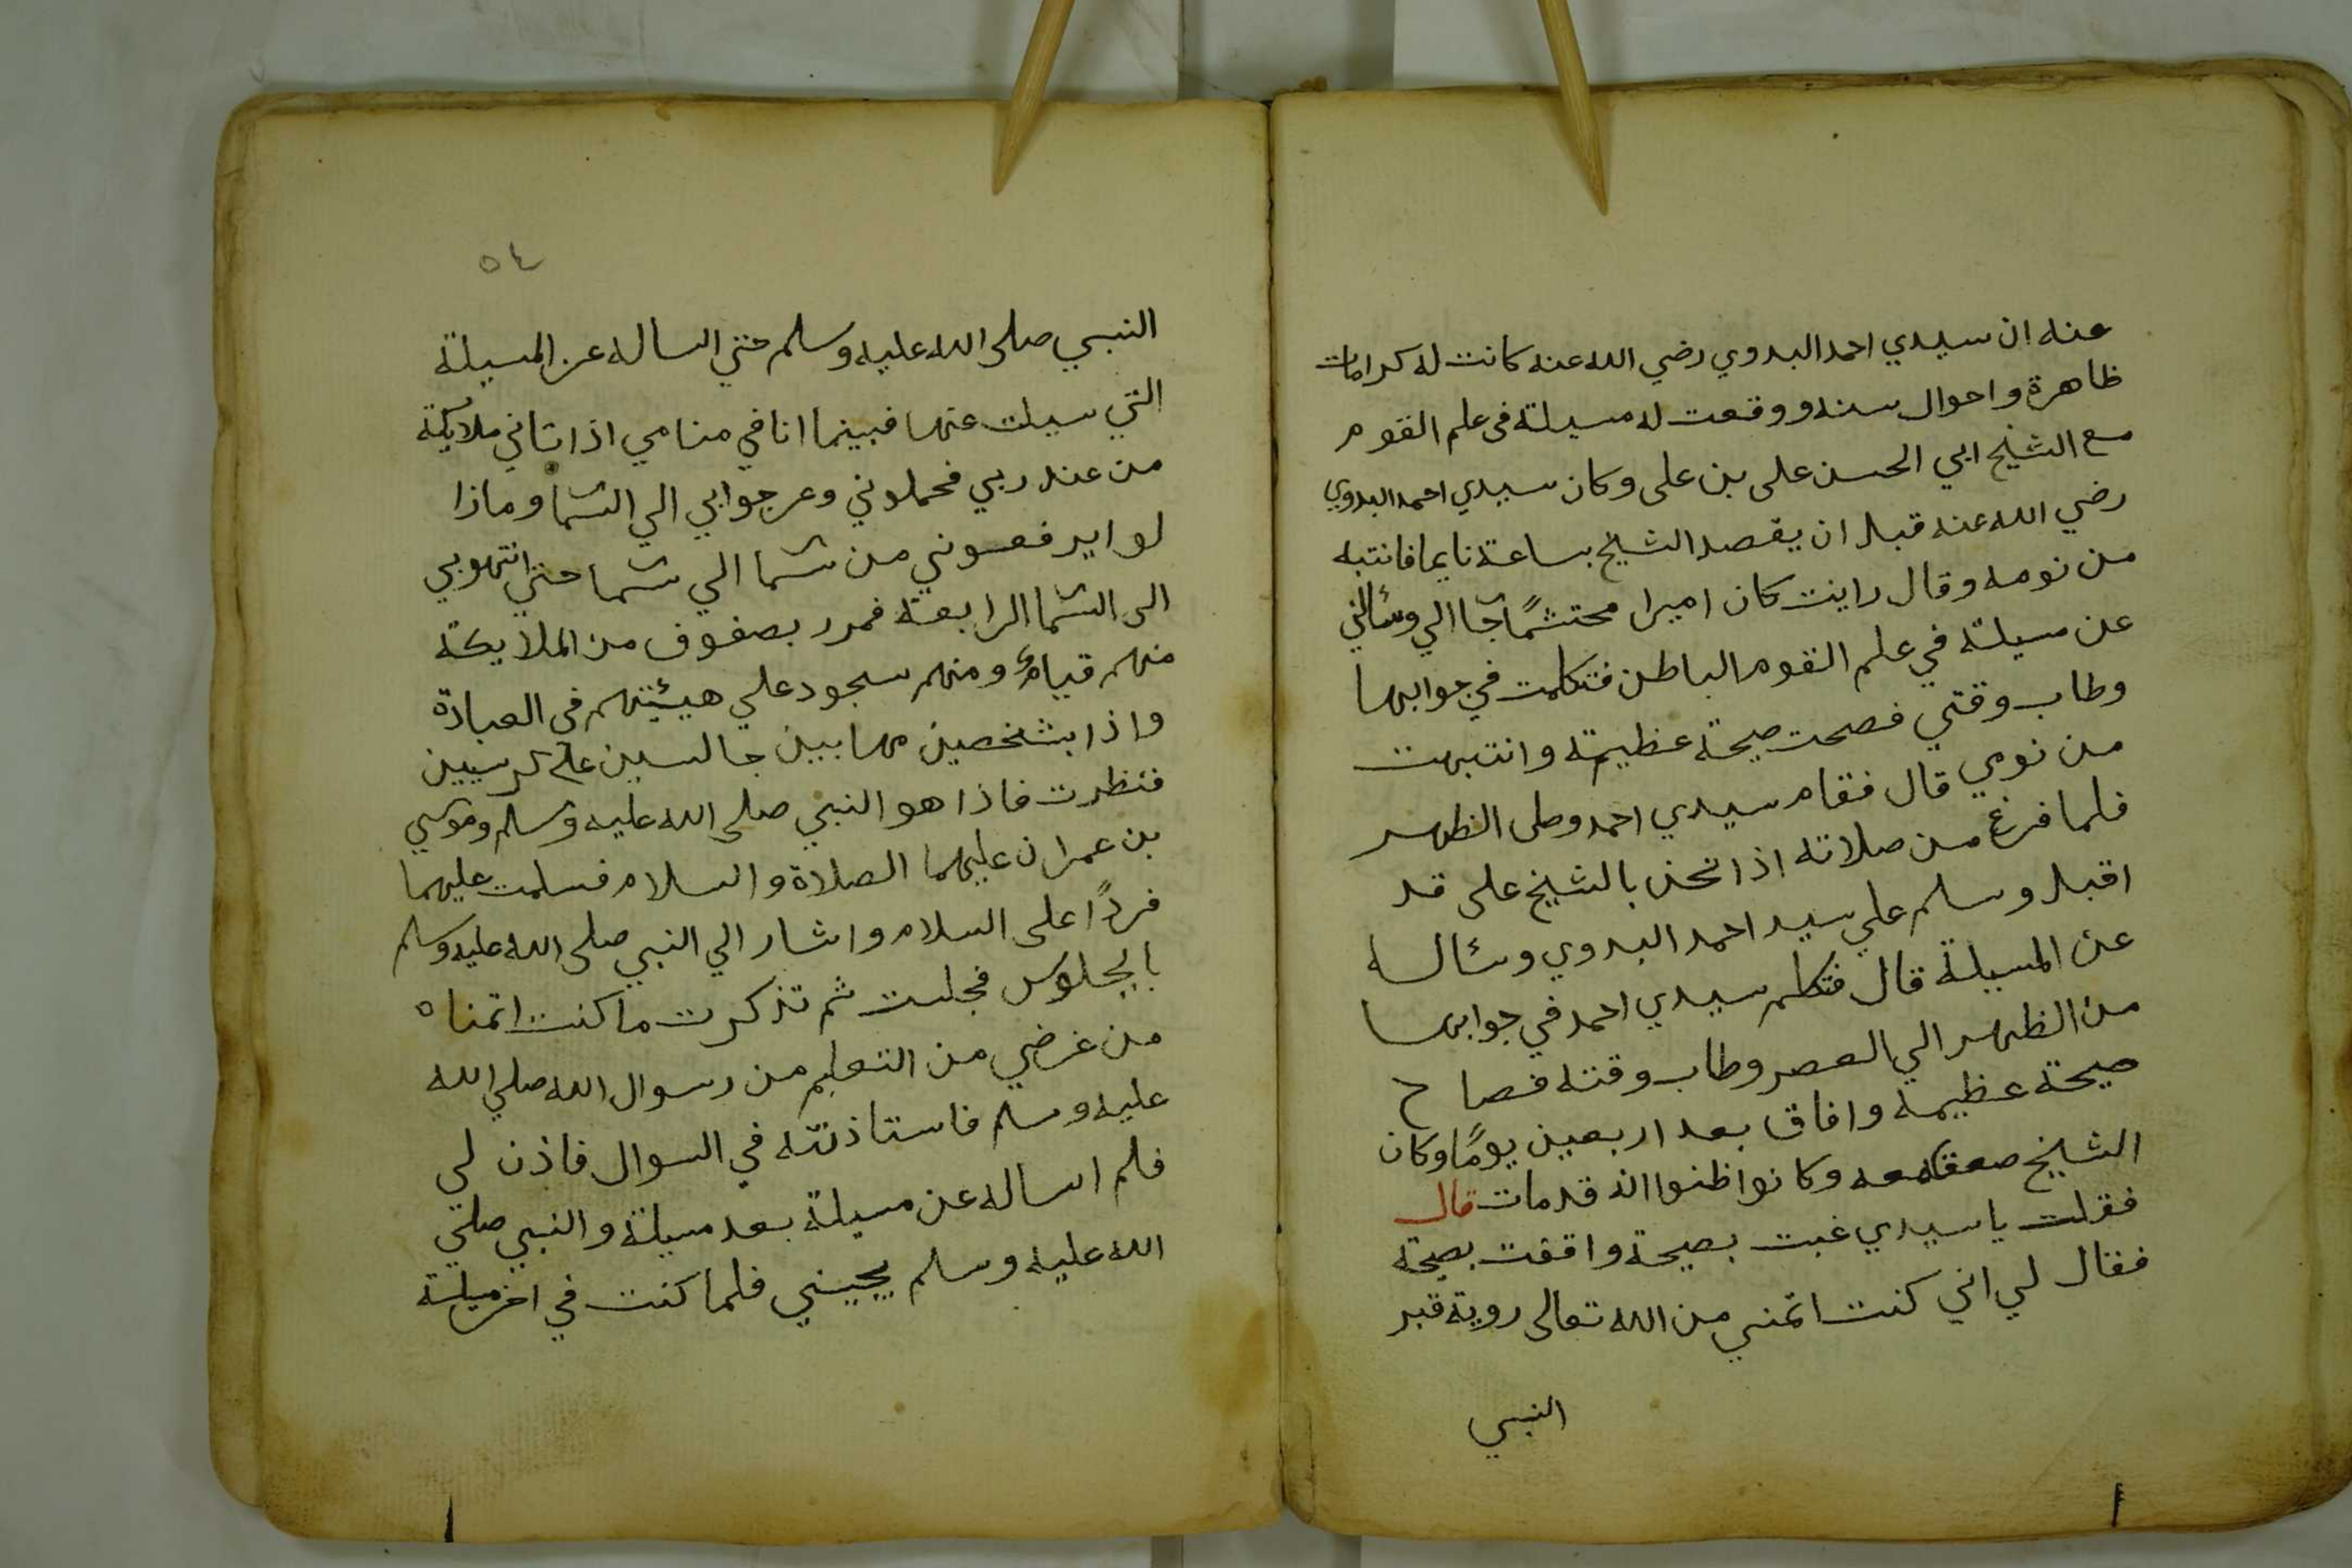 عنه ان سيدي احمد البدوي رضي الله عنه كانت له كرامات
ظاهرة واحوال سنه ووقعت له مسيلة في علم القوم
مع الشيخ ابي الحسن على بن على وكان سيدي احمد البدوي
رضي الله عنه قبل ان يقصد الشيخ بساعة نايما فانتبه
من نومه وقال رايت كان اميرا محتشمًا جآ الي وسألني
عن مسيلة في علم القوم الباطن فتكلمت في جوابها
وطاب وقتي فصحت صيحة عظيمة وانتبهت
من نومي قال فقام سيدي احمد وصلى الظهر
فلما فرغ من صلاته اذا نحن بالشيخ على قد
اقبل وسلم علي سيد احمد البدوي وسأله
عن المسيلة قال فتكلم سيدي احمد في جوابها
من الظهر الي العصر وطاب وقته فصاح
صيحة عظيمة وافاق بعد اربعين يومًا وكان
الشيخ معه وكانوا ظنوا انه قد مات قال
فقلت يا سيدي غبت بصيحة وافقت بصيحة
فقال لي اني كنت اتمني من الله تعالى روية قبر
النبي
٥٤
النبي صلى الله عليه وسلم حتي اساله عن المسيلة
التي سيلت عنها فبينما انا في منامي اذ اتاني ملايكة
من عند ربي فحملوني وعرجوا بي الي السمآ وماذا
لوا يرفعوني من سمآ الي سمآ حتي انتهوبي
الى السمآ الرابعة فمرر بصفوف من الملايكة
منهم قيام ومنهم سجود علي هيئتهم في العبادة
واذا بشخصين مهابيين جالسين علي كرسيين
فنظرت فاذا هو النبي صلى الله عليه وسلم وموسي
بن عمران عليهما الصلاة والسلام فسلمت عليهما
فردًا على السلام واشار الي النبي صلى الله عليه وسلم
بالجلوس فجلست ثم تذكرت ما كنت اتمناه
من غرضي من التعليم من رسوال الله صلي الله
عليه وسلم فاستاذنته في السوال فاذن لي
فلم اساله عن مسيلة بعد مسيلة والنبي صلي
الله عليه وسلم يجيبني فلما كنت في اخر مسيلة